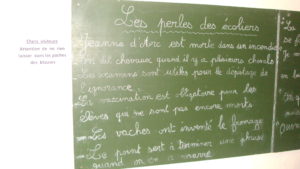 Chers visiteurs
Attention de ne pas
laisser
dans les poches
des blouses
Les perles des écoliers
Jeanne d'Arc est morte dans un incendie
On dit chevaux quand il y a plusieurs chevals
Les examens sont utiles pour le dépistage de
l'ignorance
La vaccination est obligatoire pour les
élèves qui ne sont pas encore morts
Les vaches ont inventé le fromage
Le point sert à terminer une phrase
quand on en a marre